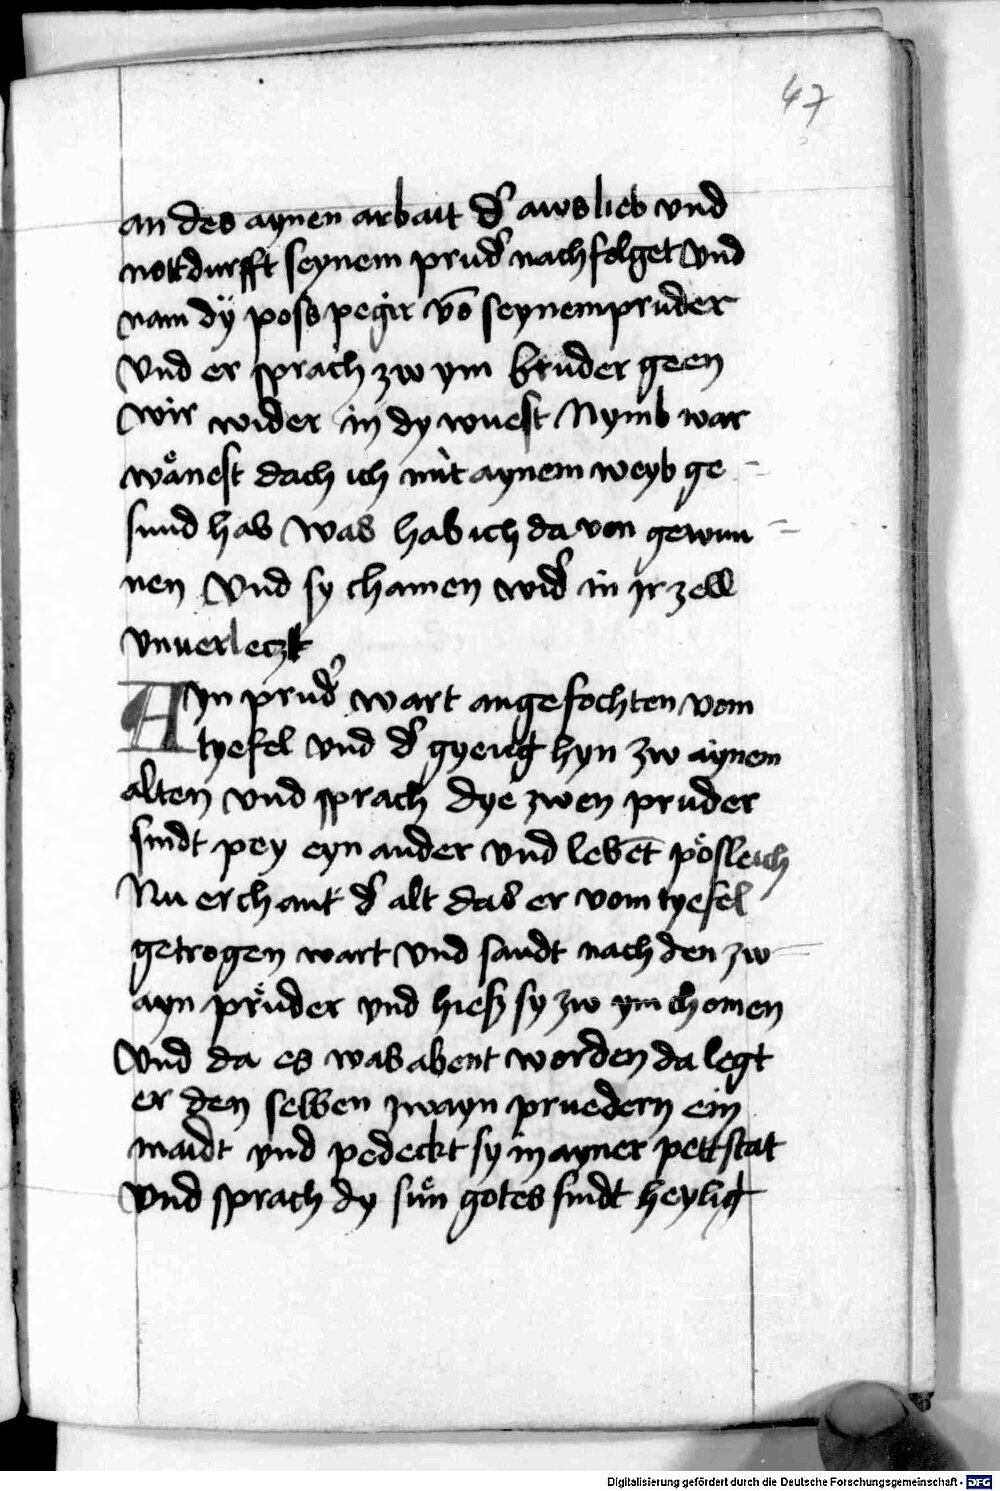 47
an des aynen arbait d͛ aws lieb vnd
nottdurfft seynem prud͛ nachfolget Vnd
nam dÿ poss pegir vō seynem pruder
Vnd er sprach zw ym bruder geen
wir wider in dy wuest Nymb war
wånest dach ich mit aynem weyb ge
sund hab Was hab ich da von gewun
nen Vnd sy chamen wid͛ in jr zell
vnuerleczt
Ayn prud͛ wart angefochten vom
tyefel vnd d͛ gyeng hyn zw aynem
alten vnd sprach dye zwen pruder
sindt pey eyn ander vnd lebēt pösleich
Nu erchant d͛ alt das er vom tyefel
getrogen wart Vnd sandt nach den zw
ayn prüder vnd hiesz sy zw ym chomen
Vnd da es was abent worden da legt
er den selben zwayn pruedern ein
maidt vnd pedeckt sy in ayner pettstat
Vnd sprach dy sün gotes sindt heylig
Digitalisierung gefördert durch die Deutsche Forschungsgemeinschaft - DFG